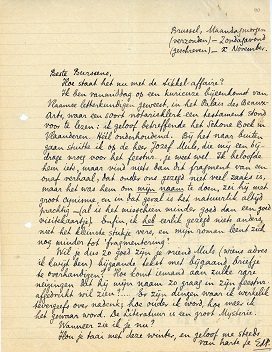 Brussel, Maandagmorgen
(verzonden) – Zondagavond
(geschreven) – 8 November.
Beste Burssens,
Hoe staat het nu met de Sikkel-affaire?
Ik ben vanmiddag op een kurieuze bijeenkomst van
Vlaamse letterkundigen geweest, in het Palais des Beaux-
Arts, waar een soort notarisklerk een testament stond
voor te lezen: ik geloof betreffende het Schone Boek in
Vlaanderen. Héél onderhoudend. Bij het naar buiten
gaan stuitte ik op de heer Jozef Muls, die mij een bij-
drage vroeg voor het feestnr., je weet wel. Ik beloofde
hem iets, maar vind niets dan het fragment van een
onaf verhaal, dat onder ons gezegd niet veel zaaks is,
maar het was hem om mijn naam te doen, zei hij met
groot cynisme, en in dat geval is het natuurlijk altijd
prachtig
Enfin, ik heb echt gezegd niets anders,
niet het kleinste stukje vers, en mijn roman leent zich
nog minder tot "fragmentering".
Wil je dus zo goed zijn je vriend Muls (wiens adres
ik kwijt ben) bijgaande tekst met bijgaand briefje
te overhandigen? Hoe komt iemand aan zulke rare
neigingen dat hij mijn naam zo graag in zijn feestnr.
afgedrukt wil zien! Er zijn dingen waar ik werkelijk
hoe ouder ik word, hoe meer ik
het gewaar word. De literatuur is een groot Mysterie.
Wanneer zie ik je nu?
Hou je taai met deze winter, en geloof me steeds
van harte je EdP.